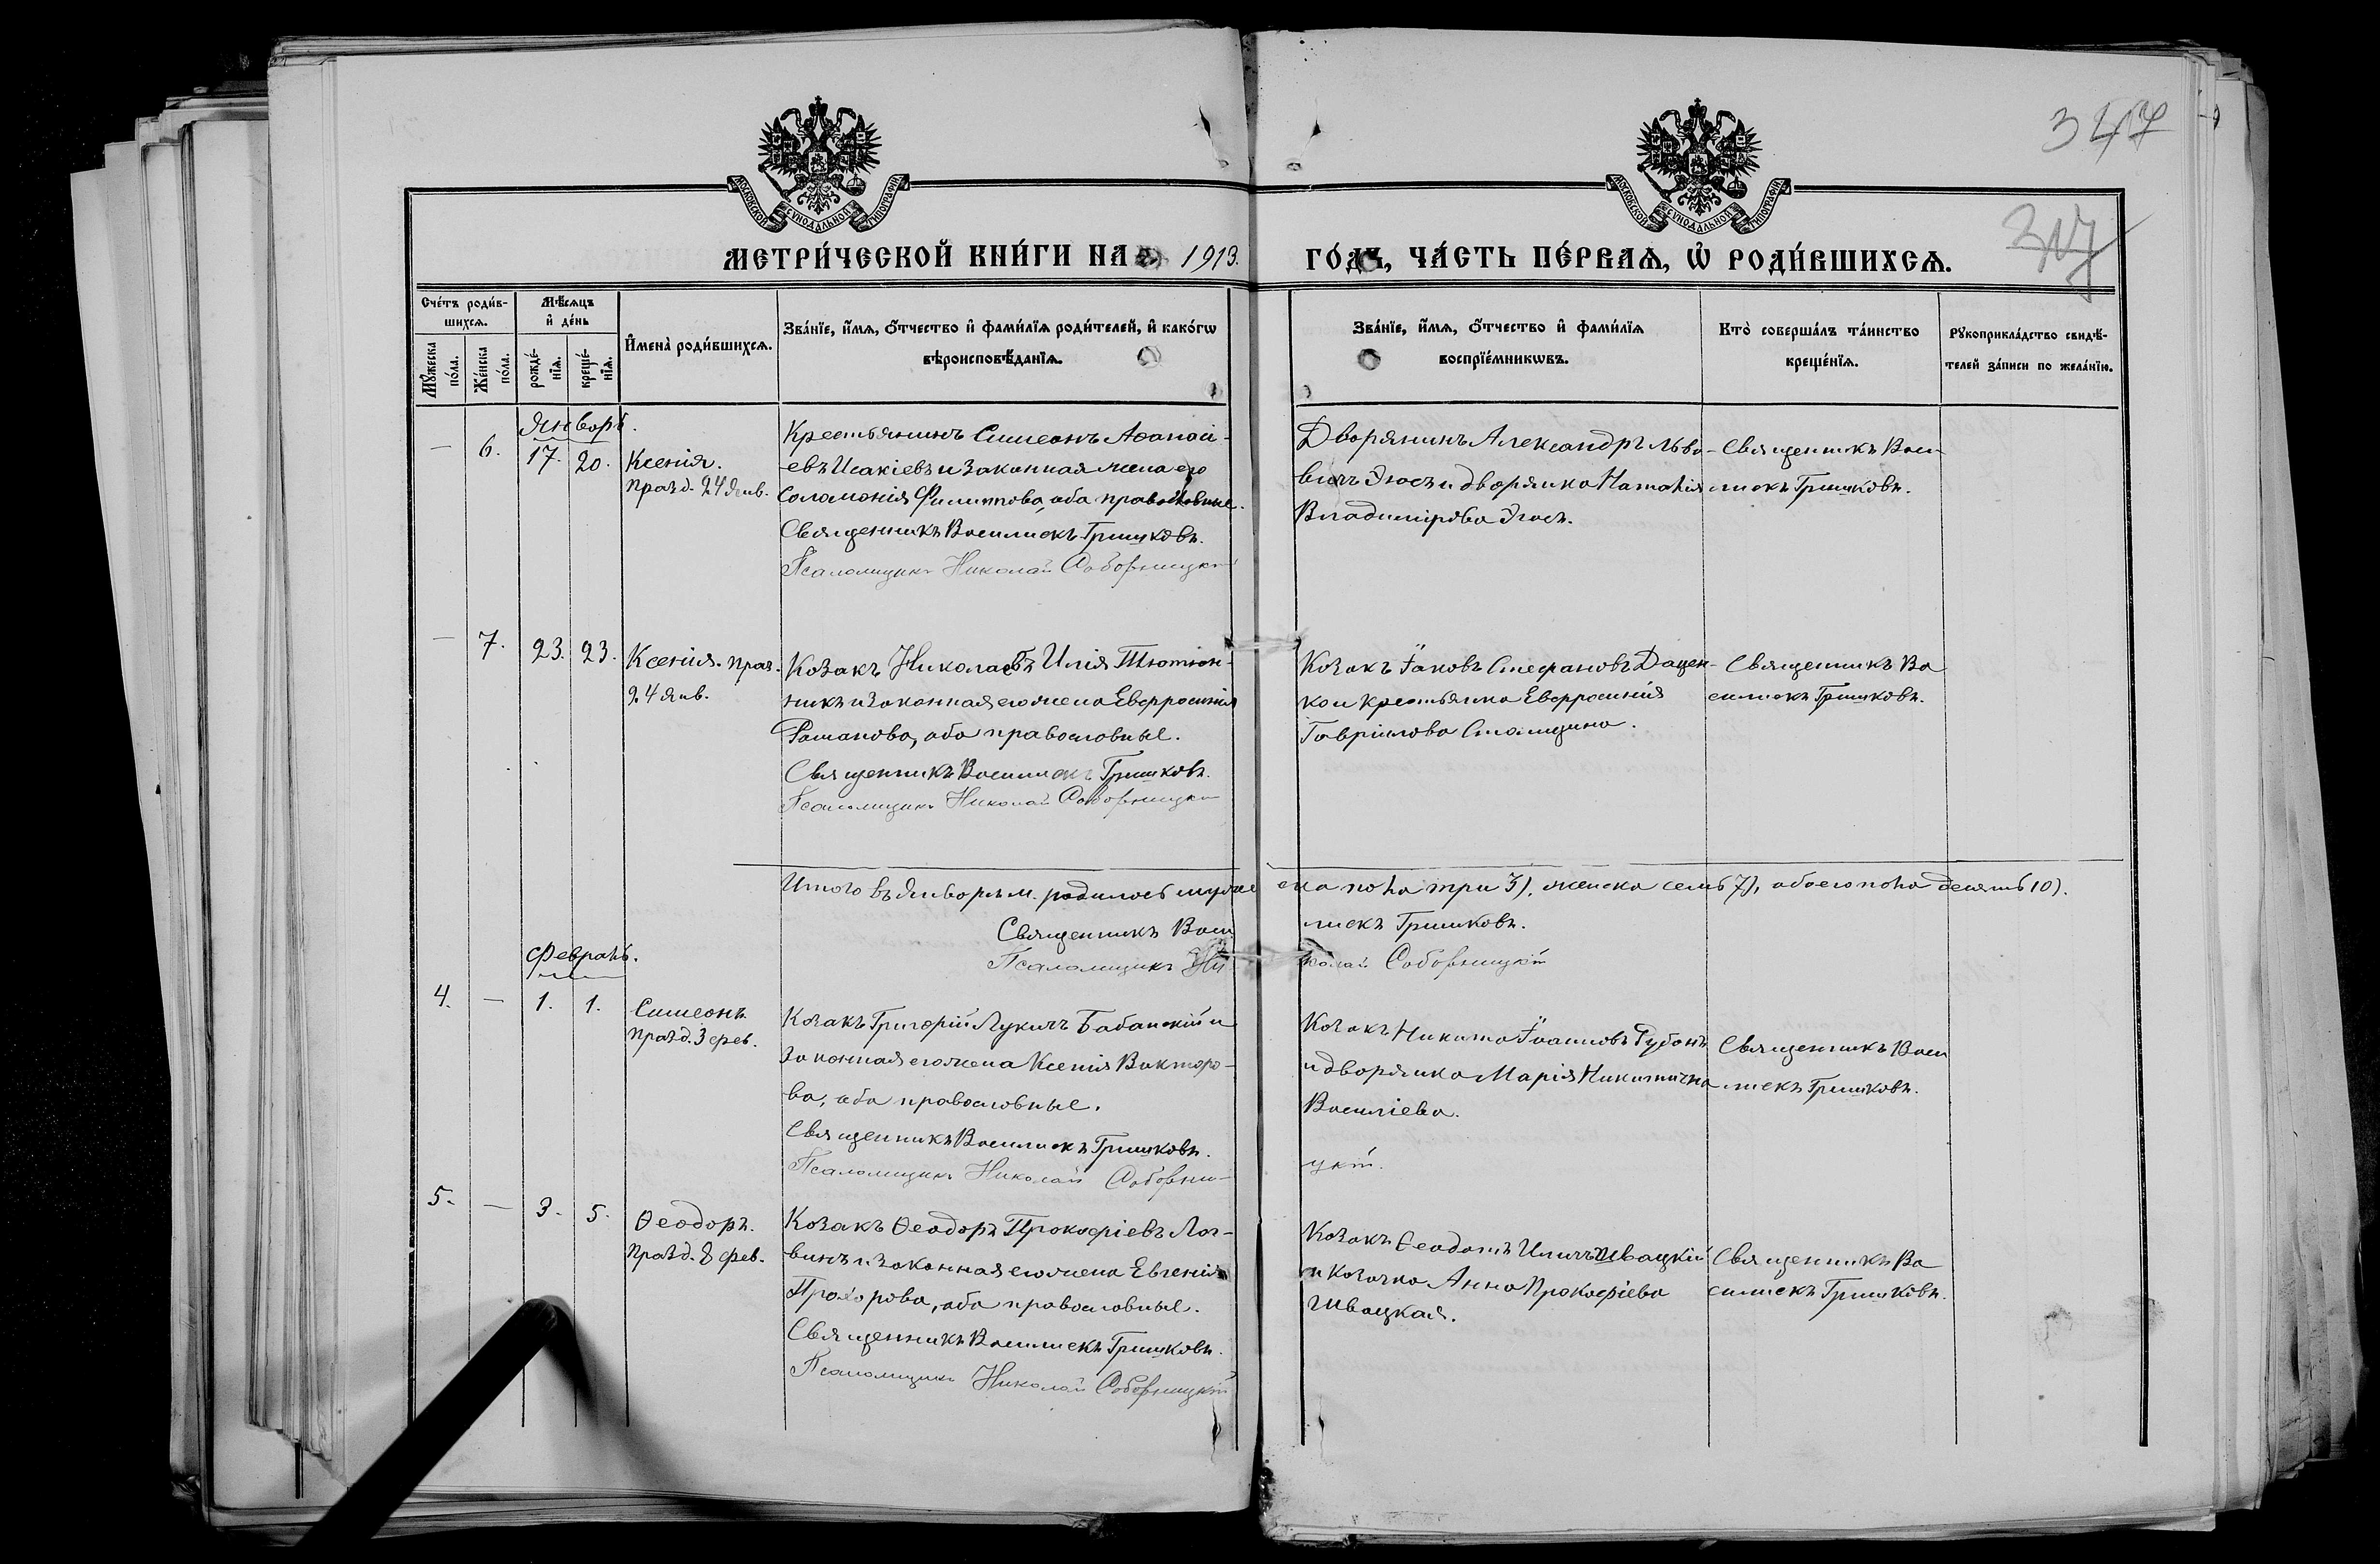 347
МОСКОВСКОЙ СѴНОДАЛЬНОЙ ТИПОГРАФІИ
МОСКОВСКОЙ СѴНОДАЛЬНОЙ ТИПОГРАФІИ
МЕТРИ́ЧЕСКОЙ КНИ́ГИ НА 1913.
ГО́ДЪ, ЧА́СТЬ ПЕ́РВАѦ, Ѽ РОДИ́ВШИХСѦ.
Сче́тъ роди́в-
шихсѧ.
Мѣ́сѧцъ
и҆ де́нь
Мꙋ́жеска
по́ла.
Же́нска
по́ла.
рожде́-
нїѧ.
креще́-
нїѧ.
И҆мена̀ роди́вшихсѧ.
Зва́нїе, и҆́мѧ, ѻ҆́тчество и҆ фами́лїѧ роди́телей, и҆ како́гѡ
вѣроисповѣ́данїѧ.
Зва́нїе, и҆́мѧ, ѻ҆́тчество и҆ фами́лїѧ
воспрїе́мникѡвъ.
Кто̀ соверша́лъ та́инство
креще́нїѧ.
Рꙋкоприкла́дство свидѣ́-
телей за́писи по жела́нїю.
Январь.
— 6. 17. 20. Ксенія.
празд. 24 янв.
Крестьянинъ Симеонъ Аѳанасі-
евъ Исакіевъ и законная жена его
Соломонія Филиппова, оба православные.
Священникъ Василискъ Гришковъ.
Псаломщикъ Николай Соборницкій
Дворянинъ Александръ Льво-
вичъ и дворянка Наталія
Владимірова
Священникъ Васи
лискъ Гришковъ.
— 7. 23. 23. Ксенія. праз.
24 янв.
Козакъ Николай Илія Тютюн-
никъ и законная его жена Евфросинія
Романова, оба православные.
Священникъ Василискъ Гришковъ.
Псаломщикъ Николай Соборницкій
Козакъ Іаковъ Стефановъ Дацен-
ко и крестьянка Евфросинія
Гавріилова
Священникъ Ва
силискъ Гришковъ.
Итого въ январѣ м. родилось мужес
ска пола три 3), женска семь 7), обоего пола десять 10).
Священникъ Васи
лискъ Гришковъ.
Псаломщикъ Ни
колай Соборницкій
Февраль.
4. — 1. 1. Симеонъ.
празд. 3 фев.
Козакъ Григорій Лукичъ Бабанскій и
законная его жена Ксенія Викторо-
ва, оба православные.
Священникъ Василискъ Гришковъ.
Псаломщикъ Николай Соборни-
цкій.
Козакъ Никита Іоанновъ Губань
и дворянка Марія Никитична
Василіева.
Священникъ Васи
лискъ Гришковъ.
5. — 3. 5. Ѳеодоръ.
празд. 8 фев.
Козакъ Ѳеодоръ Прокофіевъ Лог-
винъ и законная его жена Евгенія
Прохорова, оба православные.
Священникъ Василискъ Гришковъ.
Псаломщикъ Николай Соборницкій
Козакъ Ѳеодотъ Иличъ Швацкій
и козачка Анна Прокофіева
Швацкая.
Священникъ Ва
силискъ Гришковъ.